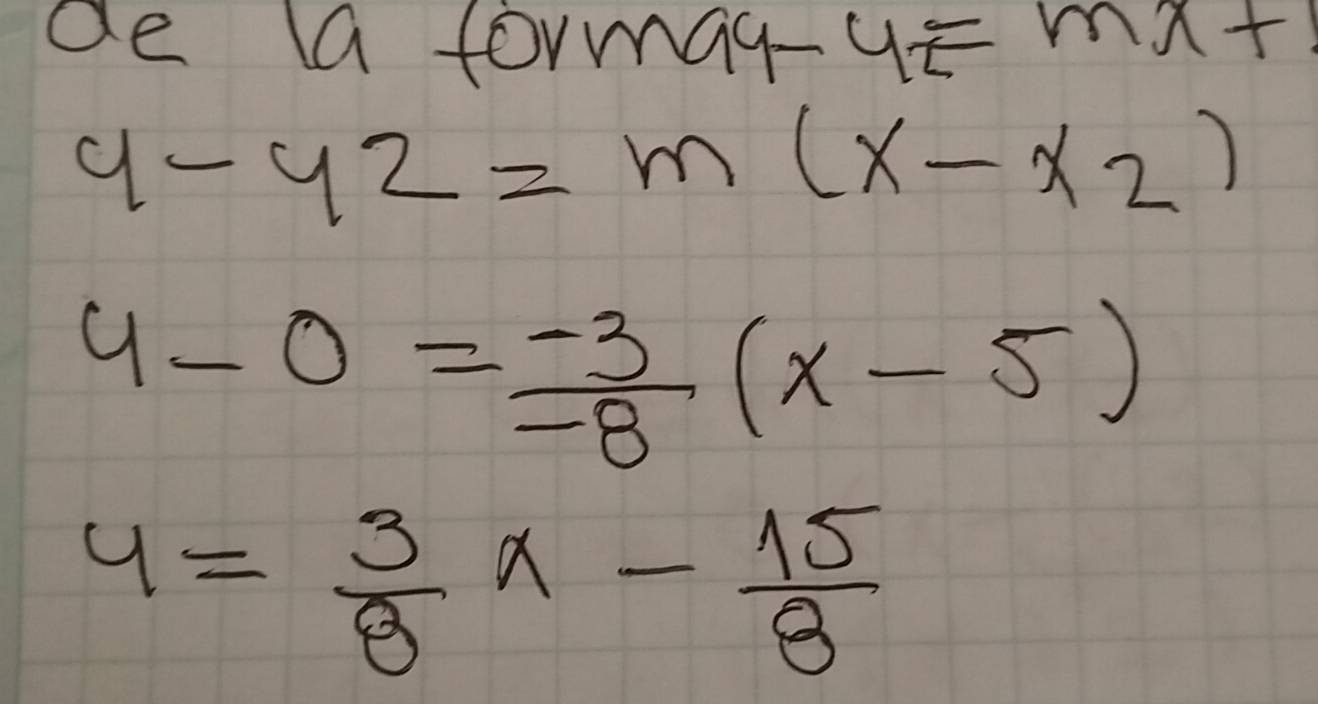 de la forma y - y = mx +
y - y2 = m (x - x2)
y - 0 = -3/-8 (x - 5)
y = 3/8 x - 15/8